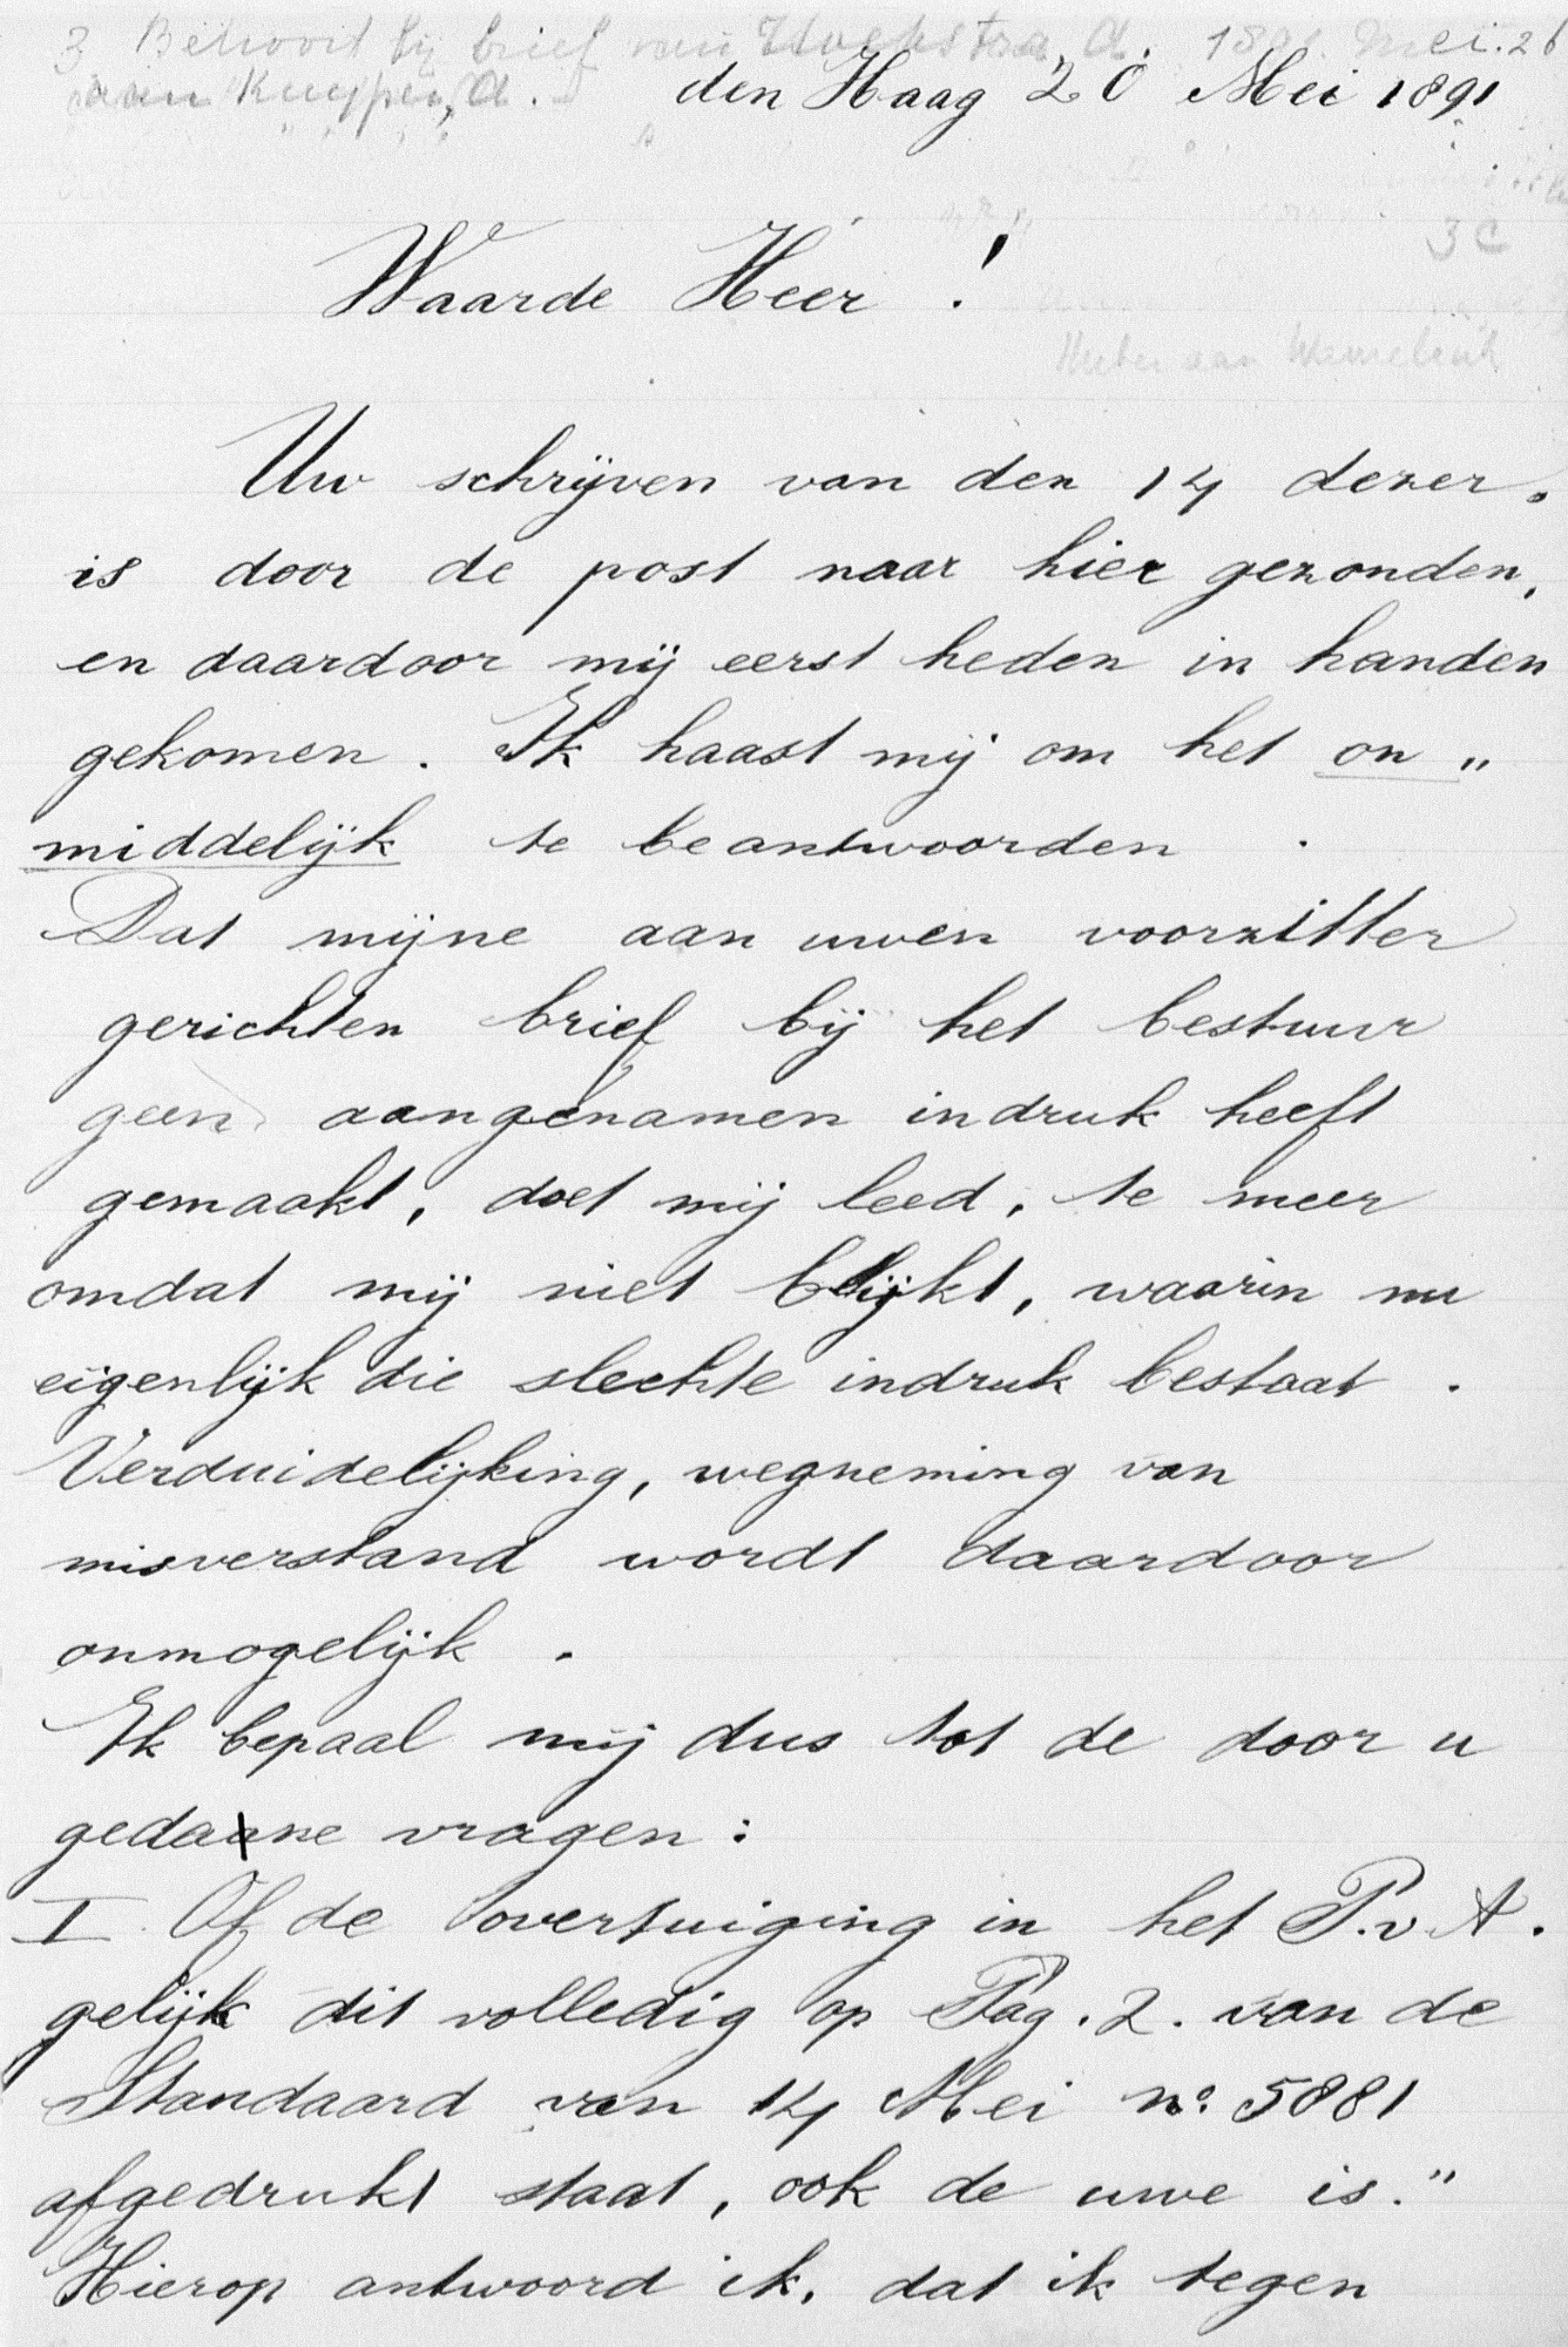 3 Behoort bij brief van Hoekstra, A. 1891 Mei.26
aan Kuyper, A.
den Haag 20 Mei 1891
3C
Waarde Heer !
aan
Uw schrijven van den 14 dezer.
is door de post naar hier gezonden,
en daardoor mij eerst heden in handen
gekomen. Ik haast mij om het on „
middelijk te beantwoorden .
Dat mijne aan uwen voorzitter
gerichten brief bij het bestuur
geen aangenamen indruk heeft
gemaakt, doet mij leed, te meer
omdat mij niet blijkt, waarin nu
eigenlijk die slechte indruk bestaat .
Verduidelijking, wegneming van
misverstand wordt daardoor
onmogelijk .
Ik bepaal mij dus tot de door u
gedaane vragen :
I Of de overtuiging in het P.v.A.
gelijk dit volledig op Pag. 2. van de
Standaard van 14 Mei no. 5881
afgedrukt staat, ook de uwe is."
Hierop antwoord ik, dat ik tegen